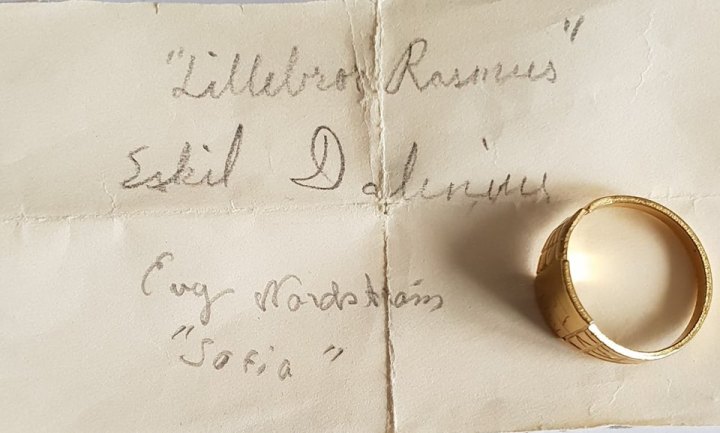 "Lillebror Rasmus"
Eskil Dalenius
Nordström
"Sofia"